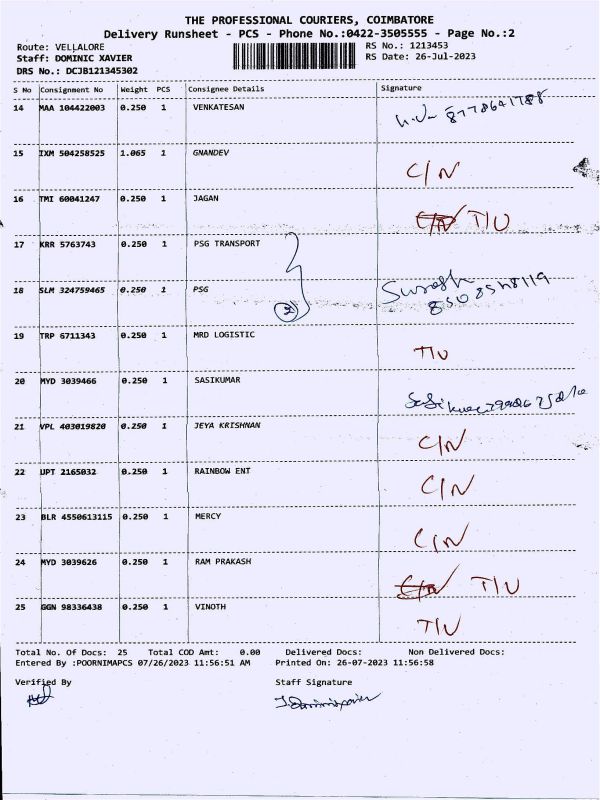 THE PROFESSIONAL COURIERS, COIMBATORE
Delivery Runsheet - PCS - Phone No.:0422-3505555 - Page No.:2
Route: VELLALORE RS No.: 1213453
Staff: DOMINIC XAVIER RS Date: 26-Jul-2023
DRS No.: DCJB121345302
S No Consignment No Weight PCS Consignee Details Signature
14 MAA 104422003 0.250 1 VENKATESAN
15 IXM 504258525 1.065 1 GNANDEV C/N
16 TMI 60041247 0.250 1 JAGAN T/U
17 KRR 5763743 0.250 1 PSG TRANSPORT
18 SLM 324759465 0.250 1 PSG 2 Suresh
19 TRP 6711343 0.250 1 MRD LOGISTIC T/U
20 MYD 3039466 0.250 1 SASIKUMAR
21 VPL 403019820 0.250 1 JEYA KRISHNAN C/N
22 UPT 2165032 0.250 1 RAINBOW ENT C/N
23 BLR 4550613115 0.250 1 MERCY C/N
24 MYD 3039626 0.250 1 RAM PRAKASH T/U
25 GGN 98336438 0.250 1 VINOTH T/U
Total No. Of Docs: 25 Total COD Amt: 0.00 Delivered Docs: Non Delivered Docs:
Entered By :POORNIMAPCS 07/26/2023 11:56:51 AM Printed On: 26-07-2023 11:56:58
Verified By Staff Signature